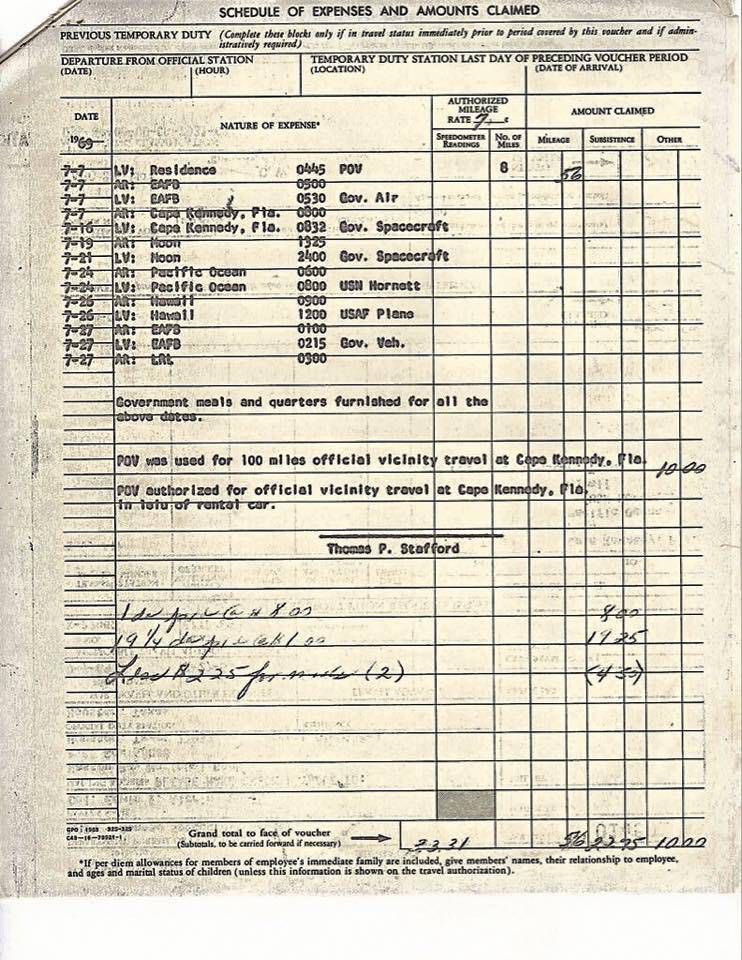 SCHEDULE OF EXPENSES AND AMOUNTS CLAIMED
PREVIOUS TEMPORARY DUTY (Complete these blocks only if in travel status immediately prior to period covered by this voucher and if admin-
istratively required)
DEPARTURE FROM OFFICIAL STATION
(DATE) (HOUR)
TEMPORARY DUTY STATION LAST DAY OF PRECEDING VOUCHER PERIOD
(LOCATION) (DATE OF ARRIVAL)
DATE
1969
NATURE OF EXPENSE*
AUTHORIZED MILEAGE RATE 7 c
SPEEDOMETER READINGS
NO. OF MILES
AMOUNT CLAIMED
MILEAGE SUBSISTENCE OTHER
7-7 LV: Residence 0445 POV 8 56
7-7 AR: EAFB 0500
7-7 LV: EAFB 0530 Gov. Air
7-7 AR: Cape Kennedy, Fla. 0800
7-16 LV: Cape Kennedy, Fla. 0832 Gov. Spacecraft
7-19 AR: Moon 1325
7-21 LV: Moon 2400 Gov. Spacecraft
7-24 AR: Pacific Ocean 0600
7-24 LV: Pacific Ocean 0800 USN Hornett
7-26 AR: Hawaii 0900
7-26 LV: Hawaii 1200 USAF Plane
7-27 AR: EAFB 0100
7-27 LV: EAFB 0215 Gov. Veh.
7-27 AR: LRL 0300
Government meals and quarters furnished for all the
above dates.
POV was used for 100 miles official vicinity travel at Cape Kennedy, Fla. 10.00
POV authorized for official vicinity travel at Cape Kennedy, Fla.
in leiu of rental car.
Thomas P. Stafford
1 da 8.00 8.00
19 1/4 da 1.00 19 25
Less $2.25 for meals (2) (4 50)
GPO : 1968
Grand total to face of voucher
(Subtotals, to be carried forward if necessary)
33.31 56 22.75 10.00
*If per diem allowances for members of employee's immediate family are included, give members' names, their relationship to employee,
and ages and marital status of children (unless this information is shown on the travel authorization).